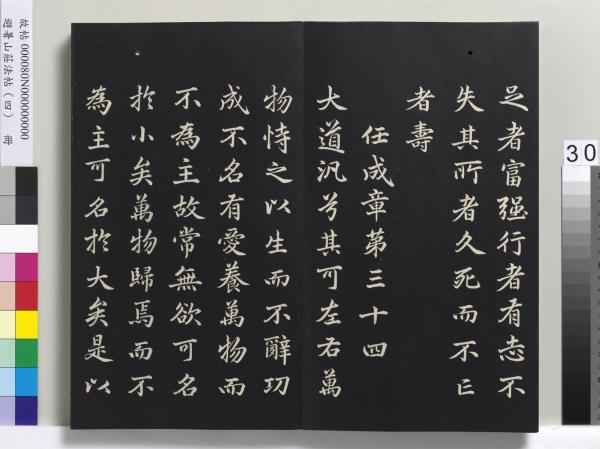 足者富强行者有志不
失其所者久死而不亡
者壽
任成章第三十四
大道汎兮其可左右萬
物恃之以生而不辭功
成不名有愛養萬物而
不為主故常無欲可名
於小矣萬物歸焉而不
為主可名於大矣是以
故帖 000080N000000000
避暑山莊法帖（四） 冊
30